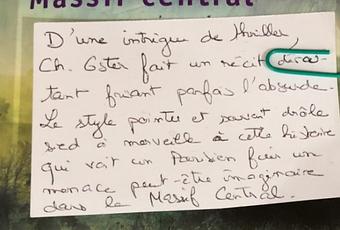 Massif Central
D'une intrigue de thriller,
Ch. Oster fait un récit dérou-
tant frisant parfois l'absurde.
Le style pointu et souvent drôle
sied à merveille à cette histoire
qui voit un Parisien fuir un
menace peut-être imaginaire
dans le Massif Central.